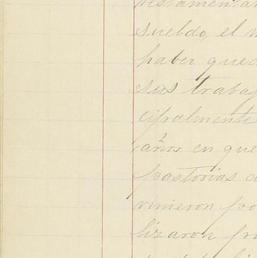 testamentar
sueldo, el
haber que
sus traba
cipalmente
años en que
pastorias
vinieron po
lizaron